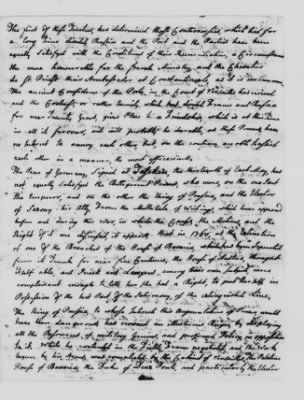 The first of these Treaties, has determined those Controversies, which had for
a long time divided Russia and the Port and the Parties have been
equally satisfied with the Conditions of their Reconciliation, a Circumstance
the more honourable for the French Ministry, and the Chevalier
de St. Priest their Ambassador at Constantinople, as it is uncommon.
The ancient Confidence of the Porte, in the Court of Versailles has revived
and the Coolness, or rather Enmity which had divided France and Russia
for near Twenty Years, gives Place to a Friendship, which is at this Time
in all its fervour, and will probably be durable, as these Powers have
no Interest to annoy each other, but on the contrary are both
each other in a manner, the most efficacious.
The Peace of Germany, Signed at Teschen, the thirteenth of last May, has
not equally satisfied the Belligerent Powers, who were, on the one Part
the Emperor, and on the other the King of Prussia, and the Elector
of Saxony his Ally. From the Multitude of Writings which have appeared
before and during this War, in which the Causes, the Motives, and
Rights of it are discussed, it appears, that in 1768, at the Extinction
of one of the Branches of the House of Bavaria, which had been separated
from its Trunk for near five Centuries, the House of Austria, thought
itself able, and Priests and Lawyers, among their own Subjects, were
complaisant enough to tell her she had a Right, to put herself in
Possession of the best Part of the Patrimony, of the extinguished Line.
The King of Prussia, to whose Interest this Augmentation of Power would
have been dangerous, has crowned an illustrious Reign, by displaying
all the Resources of military Genius and profound Policy, in opposition
to it. While he contended in the Field, France negotiated, and the Work
begun by his Arms, was compleated by the Cabinet of Versailles. The Palatine
House of Bavaria, the Duke of Deux Ponts, and particularly the Elector